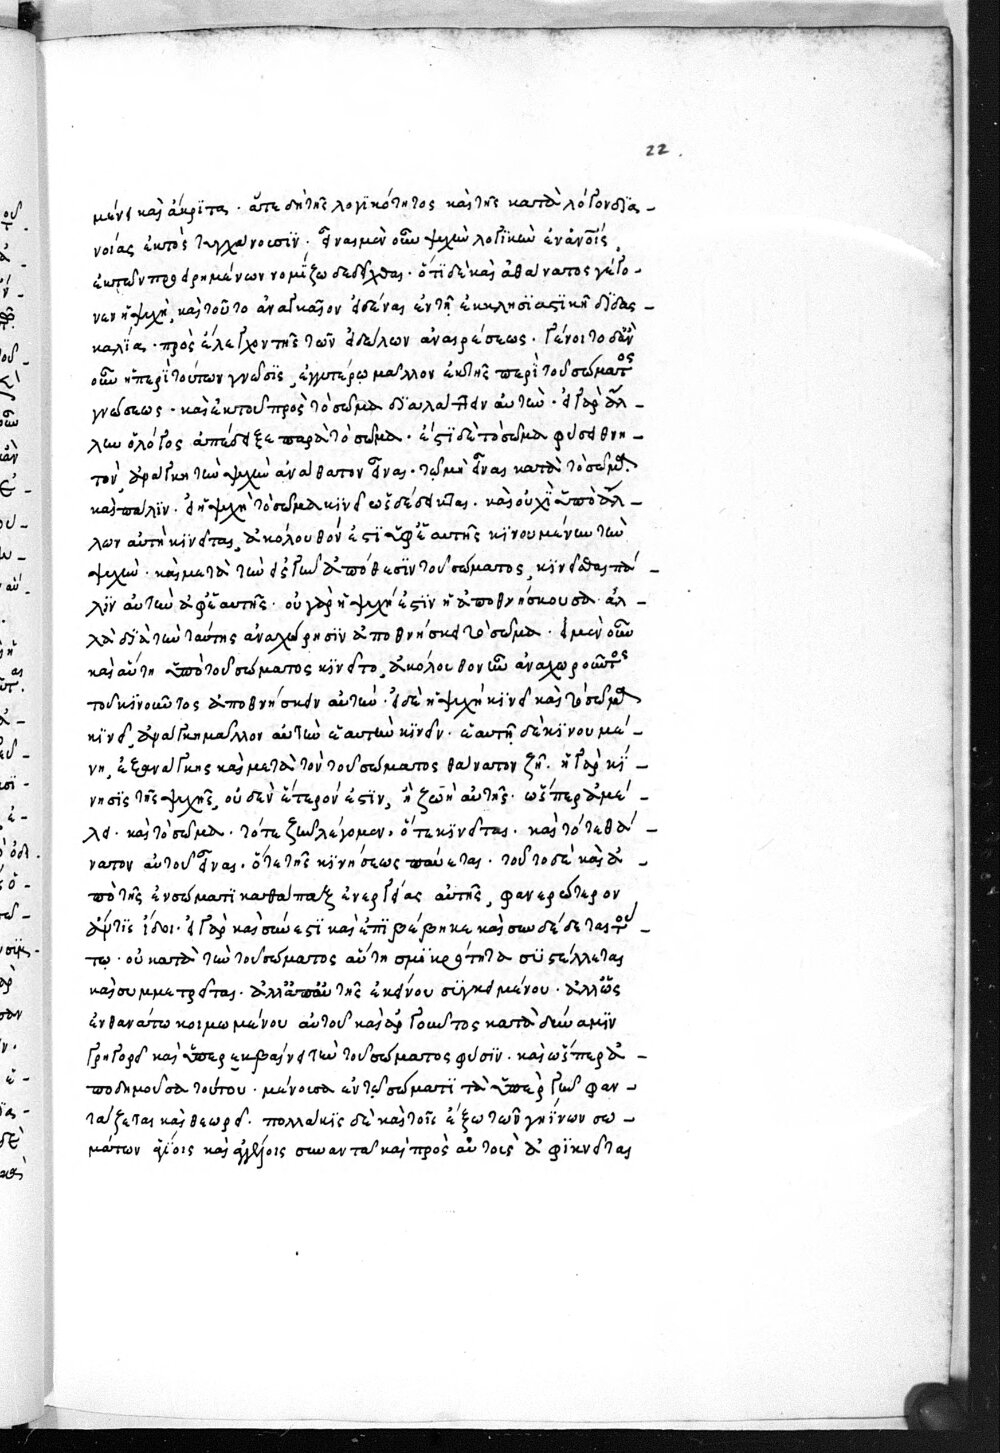 22.
μένει καὶ ἄκριτα. ἅτε δὴ τῆς λογικότητος καὶ τῆς κατὰ λόγον δια-
νοίας ἐκτὸς τυγχάνουσιν. εἶναι μὲν οὖν ψυχὴν λογικὴν ἐν ἀνοις
ἐκ τῶν προειρημένων νομίζω δεδεῖχθαι. ὅτι δὲ καὶ ἀθάνατος γέγο-
νεν ἡ ψυχὴ, καὶ τοῦτο ἀναγκαῖον εἰδέναι ἐν τῇ ἐκκλησιαστικῇ διδασ-
καλίᾳ. πρὸς ἔλεγχον τῆς τῶν εἰδώλων ἀναιρέσεως. γένοιτο δ' ἂν
οὖν ἡ περὶ τούτων γνῶσις, ἐγγυτέρω μᾶλλον ἐκ τῆς περὶ τοῦ σώματος
γνώσεως. καὶ ἐκ τοῦ πρὸς τὸ σῶμα διαλλάττειν αὐτήν. εἰ γὰρ ἄλ-
λην ὁ λόγος ἀπέδειξε παρὰ τὸ σῶμα. ἔστι δὲ τὸ σῶμα φύσει θνη-
τόν, ἀνάγκη τὴν ψυχὴν ἀθάνατον εἶναι. τῷ μὴ εἶναι κατὰ τὸ σῶμα.
καὶ πάλιν. εἰ ἡ ψυχὴ τὸ σῶμα κινεῖ ὡς δέδεικται. καὶ οὐχὶ ὑπὸ ἄλ-
λων αὐτὴ κινεῖται, ἀκόλουθόν ἐστιν ὑφ' ἑαυτῆς κινουμένην τὴν
ψυχήν. καὶ μετὰ τὴν εἰς γῆν ἀπόθεσιν τοῦ σώματος, κινεῖσθαι πά-
λιν αὐτὴν ἀφ' ἑαυτῆς. οὐ γὰρ ἡ ψυχή ἐστιν ἡ ἀποθνήσκουσα. ἀλ-
λὰ διὰ τὴν ταύτης ἀναχώρησιν ἀποθνήσκει τὸ σῶμα. εἰ μὲν οὖν
καὶ αὕτη ὑπὸ τοῦ σώματος κινεῖτο, ἀκόλουθον ἦν ἀναχωροῦντος
τοῦ κινοῦντος ἀποθνήσκειν αὐτήν. εἰ δὲ ἡ ψυχὴ κινεῖ καὶ τὸ σῶμα
κινεῖ, ἀνάγκη μᾶλλον αὐτὴν ἑαυτὴν κινεῖν. ἑαυτῇ δὲ κινουμέ-
νη, ἐξ ἀνάγκης καὶ μετὰ τὸν τοῦ σώματος θάνατον ζῇ. ἡ γὰρ κί-
νησις τῆς ψυχῆς, οὐδὲν ἕτερόν ἐστιν, ἢ ζωὴ αὐτῆς. ὥσπερ ἀμέ-
λει. καὶ τὸ σῶμα. τότε ζῆν λέγομεν. ὅτε κινεῖται. καὶ τότε θά-
νατον αὐτοῦ εἶναι. ὅτε τῆς κινήσεως παύεται. τοῦτο δὲ καὶ ἀ-
πὸ τῆς ἐν σώματι καθάπαξ ἐνεργείας αὐτῆς, φανερώτερον
ἄν τις ἴδοι. εἰ γὰρ καὶ σύνεστι καὶ ἐπιβέβηκε καὶ συνδέδεται τού-
τῳ. οὐ κατὰ τὴν τοῦ σώματος αὕτη σμικρότητα συστέλλεται
καὶ συμμετρεῖται. ἀλλὰ ἐκείνου συγκειμένου.
ἐν θανάτῳ κοιμωμένου αὐτοῦ καὶ ἀργοῦντος κατὰ
γρηγορεῖ καὶ ὑπερεκβαίνει τὴν τοῦ σώματος φύσιν. καὶ ὥσπερ ἀ-
ποδημοῦσα τούτου. μένουσα ἐν τῷ σώματι τὰ ὑπὲρ γῆν φαν-
τάζεται καὶ θεωρεῖ. πολλάκις δὲ καὶ τοῖς ἔξω τῶν γηίνων σω-
μάτων ἁγίοις καὶ ἀγγέλοις συναντᾷ καὶ πρὸς αὐτοὺς ἀφικνεῖται